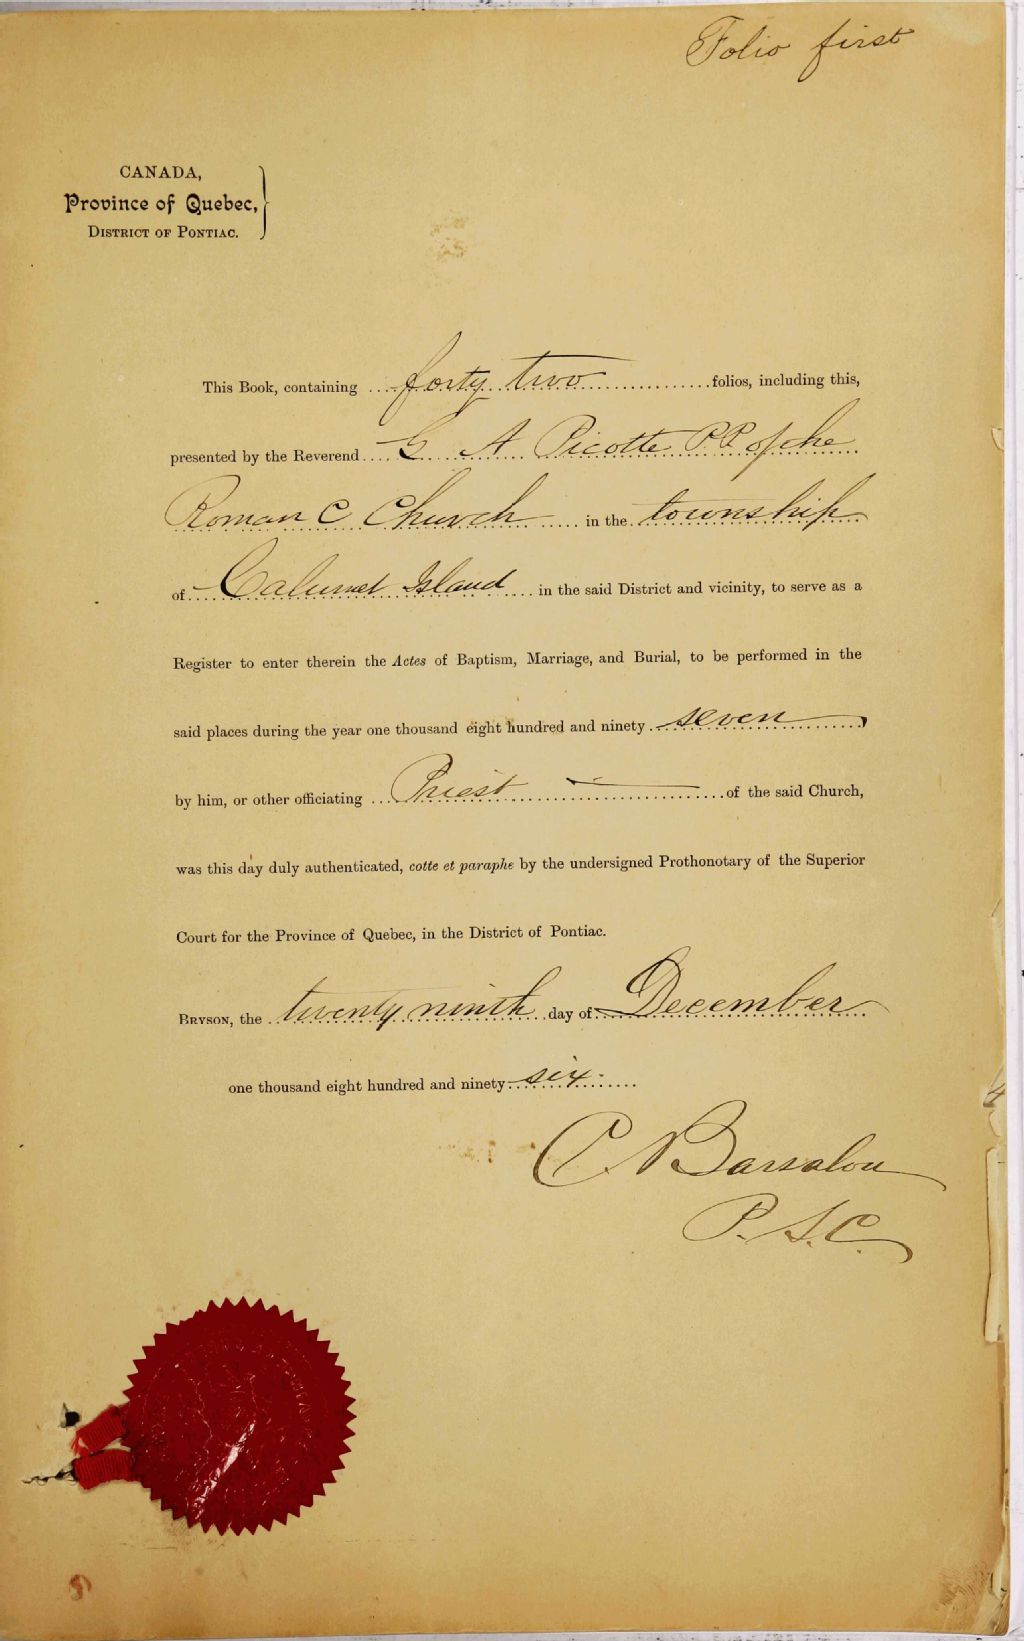 Folio first
CANADA,
Province of Quebec,
DISTRICT OF PONTIAC.
This Book, containing forty two folios, including this,
presented by the Reverend G A Picotte P.P. of the
Roman C Church in the township
of Calumet Island in the said District and vicinity, to serve as a
Register to enter therein the Actes of Baptism, Marriage, and Burial, to be performed in the
said places during the year one thousand eight hundred and ninety seven
by him, or other officiating Priest of the said Church,
was this day duly authenticated, cotte et paraphe by the undersigned Prothonotary of the Superior
Court for the Province of Quebec, in the District of Pontiac.
BRYSON, the twenty ninth day of December
one thousand eight hundred and ninety six
Barsalou
P.S.C.